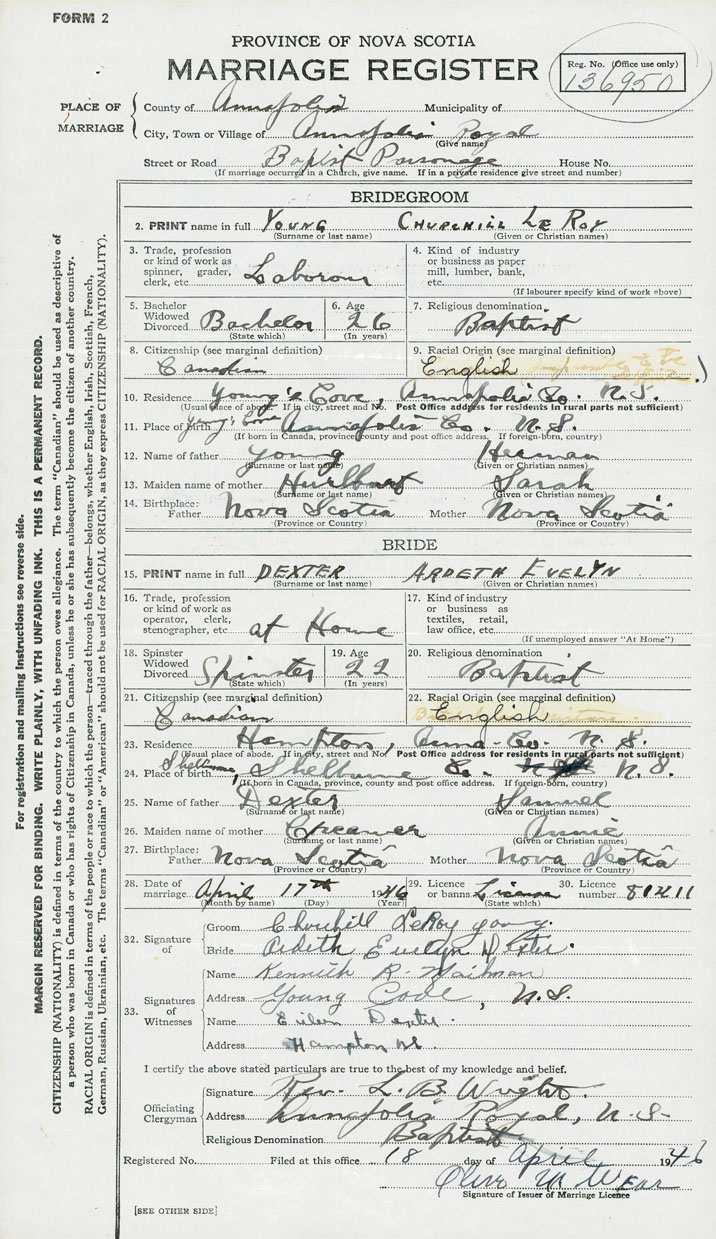 FORM 2
PROVINCE OF NOVA SCOTIA
MARRIAGE REGISTER
Reg. No. (Office use only)
136950
PLACE OF MARRIAGE
County of Annapolis Municipality of
City, Town or Village of Annapolis Royal
(Give name)
Street or Road Baptist Parsonage House No.
(If marriage occurred in a Church, give name. If in a private residence give street and number)
BRIDEGROOM
2. PRINT name in full YOUNG CHURCHILL LE ROY
(Surname or last name) (Given or Christian names)
3. Trade, profession or kind of work as spinner, grader, clerk, etc. Labourer
4. Kind of industry or business as paper mill, lumber, bank, etc.
(If labourer specify kind of work above)
5. Bachelor Widowed Divorced Bachelor (State which)
6. Age 26 (In years)
7. Religious denomination Baptist
8. Citizenship (see marginal definition) Canadian
9. Racial Origin (see marginal definition) English
10. Residence Young's Cove, Annapolis Co. N.S.
(Usual place of abode. If in city, street and No. Post Office address for residents in rural parts not sufficient)
11. Place of birth Young's Cove Annapolis Co. N.S.
(If born in Canada, province, county and post office address. If foreign-born, country)
12. Name of father Young Herman
(Surname or last name) (Given or Christian names)
13. Maiden name of mother Hurlburt Sarah
(Surname or last name) (Given or Christian names)
14. Birthplace: Father Nova Scotia Mother Nova Scotia
(Province or Country) (Province or Country)
BRIDE
15. PRINT name in full DEXTER ARDETH EVELYN
(Surname or last name) (Given or Christian names)
16. Trade, profession or kind of work as operator, clerk, stenographer, etc. at Home
17. Kind of industry or business as textiles, retail, law office, etc.
(If unemployed answer "At Home")
18. Spinster Widowed Divorced Spinster (State which)
19. Age 22 (In years)
20. Religious denomination Baptist
21. Citizenship (see marginal definition) Canadian
22. Racial Origin (see marginal definition) English
23. Residence Hampton, Anna. Co. N.S.
(Usual place of abode. If in city, street and No. Post Office address for residents in rural parts not sufficient)
24. Place of birth Shelburne, Shelburne Co. N.S.
(If born in Canada, province, county and post office address. If foreign-born, country)
25. Name of father Dexter Samuel
(Surname or last name) (Given or Christian names)
26. Maiden name of mother Creamer Annie
(Surname or last name) (Given or Christian names)
27. Birthplace: Father Nova Scotia Mother Nova Scotia
(Province or Country) (Province or Country)
28. Date of marriage April 17th 1946
(Month by name) (Day) (Year)
29. Licence or banns License (State which)
30. Licence number 81211
32. Signature of
Groom Churchill LeRoy Young.
Bride Ardeth Evelyn Dexter.
33. Signatures of Witnesses
Name Kenneth R. Mailman
Address Young Cove, N.S.
Name Eileen Dexter.
Address Hampton NS.
I certify the above stated particulars are true to the best of my knowledge and belief.
Officiating Clergyman
Signature Rev. L. B. Wright.
Address Annapolis Royal, N.S.
Religious Denomination Baptist
Registered No. Filed at this office 18 day of April 1946
Signature of Issuer of Marriage Licence
[SEE OTHER SIDE]
For registration and mailing instructions see reverse side.
MARGIN RESERVED FOR BINDING. WRITE PLAINLY, WITH UNFADING INK. THIS IS A PERMANENT RECORD.
CITIZENSHIP (NATIONALITY) is defined in terms of the country to which the person owes allegiance. The term "Canadian" should be used as descriptive of
a person who was born in Canada or who has rights of Citizenship in Canada, unless he or she has subsequently become the citizen of another country.
RACIAL ORIGIN is defined in terms of the people or race to which the person—traced through the father—belongs, whether English, Irish, Scottish, French,
German, Russian, Ukrainian, etc. The terms "Canadian" or "American" should not be used for RACIAL ORIGIN, as they express CITIZENSHIP (NATIONALITY).